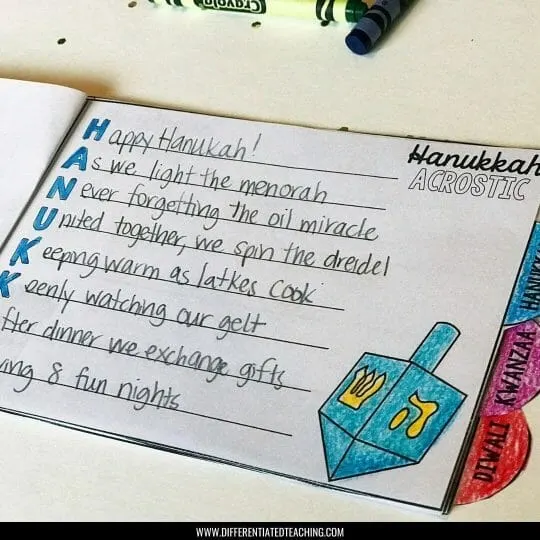 Crayola
Hanukkah
ACROSTIC
Happy Hanukah!
As we light the menorah
Never forgetting the oil miracle
United together, we spin the dreidel
Keeping warm as latkes cook
Keenly watching our gelt
fter dinner we exchange gifts
ving 8 fun nights
ש
ה
HANUKK
KWANZAA
DIWALI
WWW.DIFFERENTIATEDTEACHING.COM